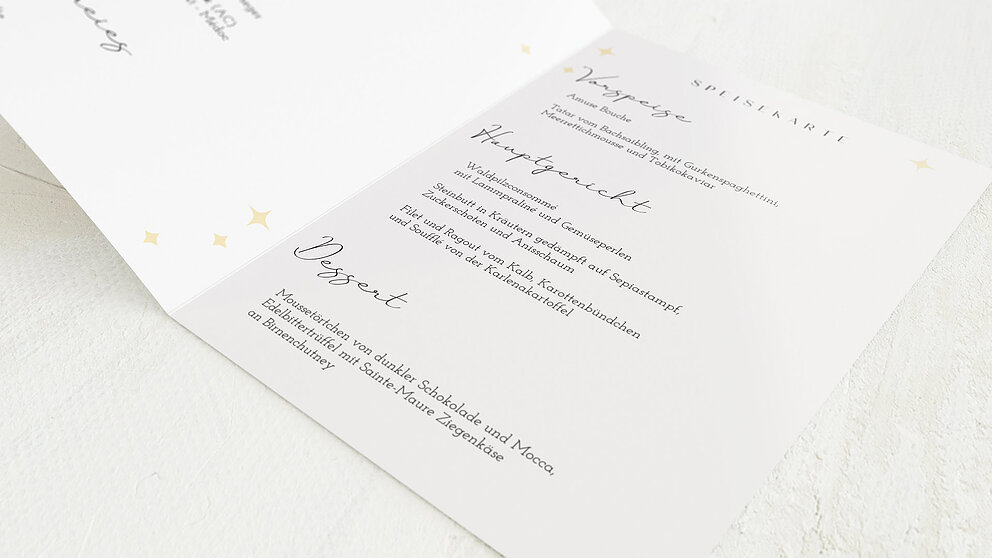 (AC)
Médoc
SPEISEKARTE
Vorspeise
Amuse Bouche
Tatar vom Bachsaibling, mit Gurkenspaghettini,
Meerrettichmousse und Tobikokaviar
Hauptgericht
Waldpilzconsommé
mit Lammpraline und Gemüseperlen
Steinbutt in Kräutern gedämpft auf Sepiastampf,
Zuckerschoten und Anisschaum
Filet und Ragout vom Kalb, Karottenbündchen
und Soufflé von der Karlenakartoffel
Dessert
Moussetörtchen von dunkler Schokolade und Mocca,
Edelbittertrüffel mit Sainte-Maure Ziegenkäse
an Birnenchutney